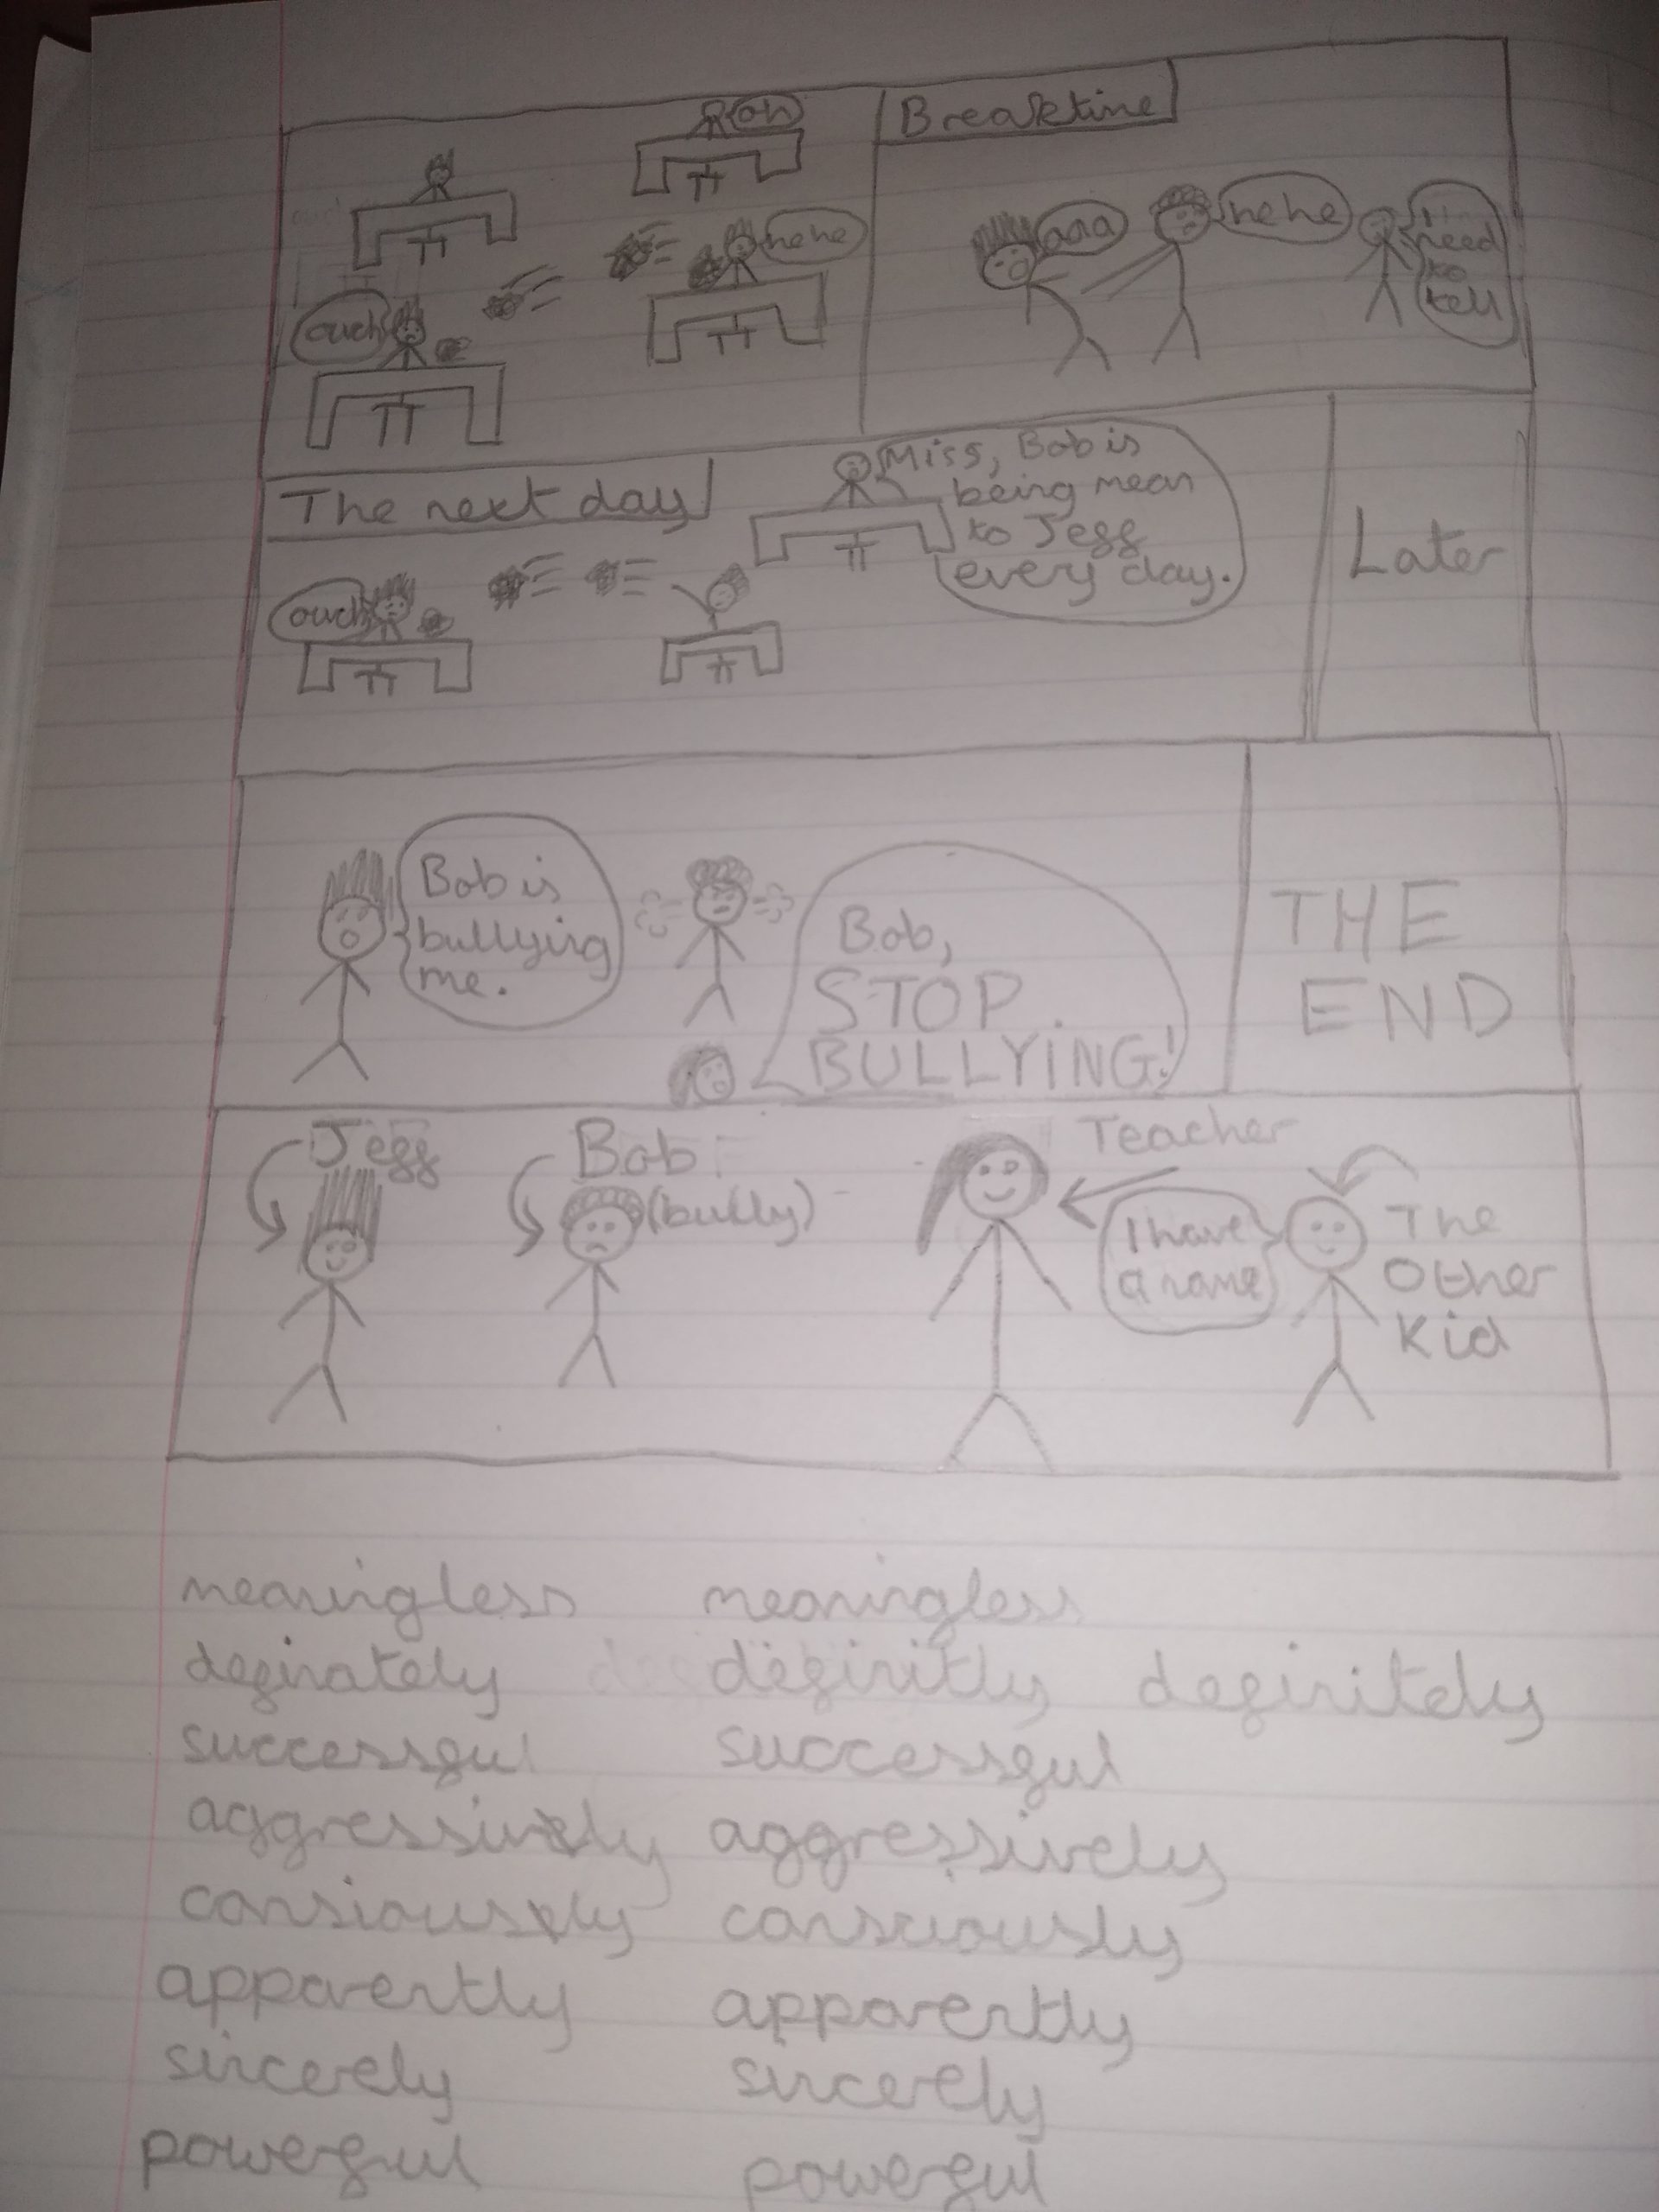 oh
hehe
ouch
Breaktime
aaa
hehe
I
need
to
tell
The next day
Miss, Bob is
being mean
to Jeff
every day.
ouch
Later
Bob is
bullying
me.
Bob,
STOP
BULLYiNG!
THE
END
Jeff
Bob
(bully)
Teacher
I have
a name
The
Other
Kid
meaningless meaningless
definately definitly definitely
successful successful
aggressively aggressively
consiously consciously
apparently apparently
sincerely sincerely
powerful powerful